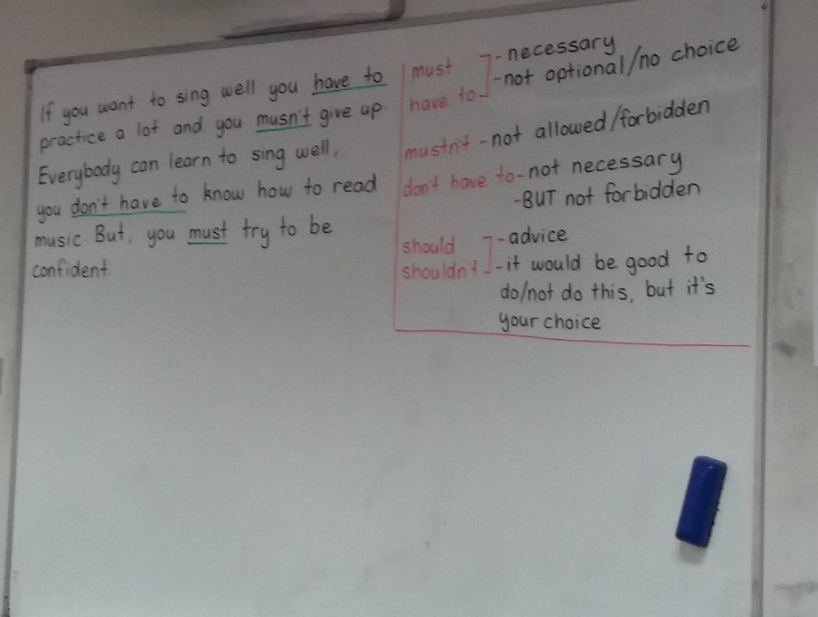 If you want to sing well you have to
practice a lot and you musn't give up
Everybody can learn to sing well,
you don't have to know how to read
music. But, you must try to be
confident.
must
have to
-necessary
-not optional/no choice
mustn't -not allowed/forbidden
don't have to-not necessary
-BUT not forbidden
should
shouldn't
-advice
-it would be good to
do/not do this, but it's
your choice